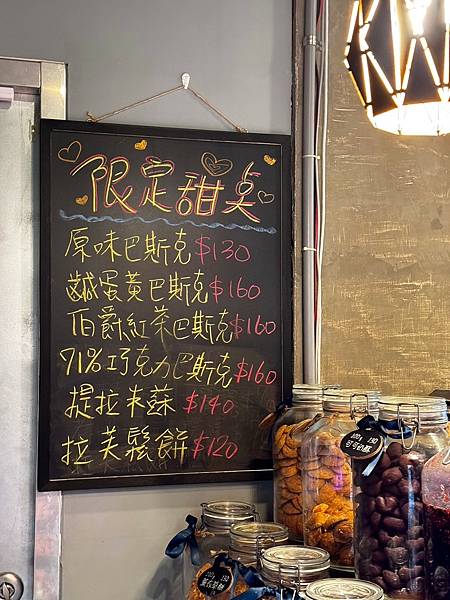 限定甜点
原味巴斯克$130
鹹蛋黃巴斯克$160
伯爵紅茶巴斯克$160
71%巧克力巴斯克$160
提拉米蘇 $140
拉芙鬆餅$120